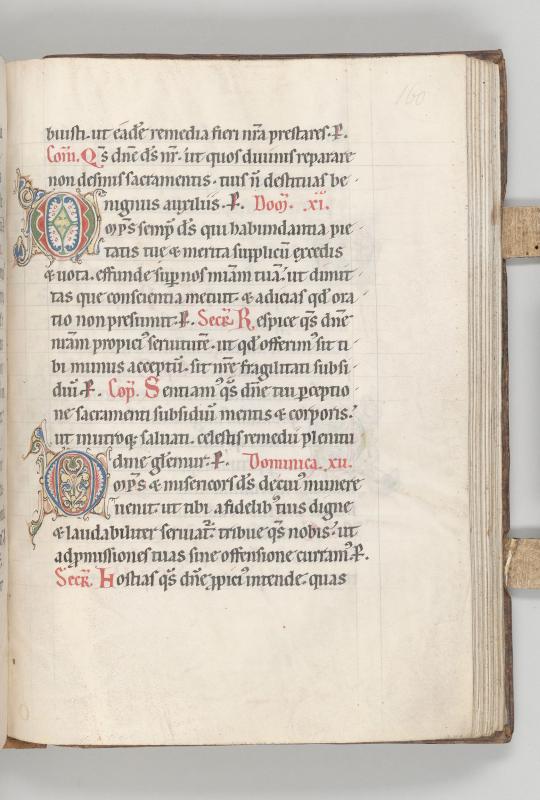 160
buisti. ut eadē remedia fieri nr̄a prestares. P.
Com̄. Q̄s dn̄e ds̄ nr̄. ut quos diuinis reparare
non desinis sacramentis. tuis n̄ destituas be
nignus auxiliis. P. Dom̄. xi.
Omp̄s semp̄ ds̄ qui habundantia pie
tatis tue & merita supplicū excedis
& uota. effunde sup̄ nos mīam tuā. ut dimit
tas que conscientia metuit. & adicias qd̄ ora
tio non presumit. P. Secr̄. Respice q̄s dn̄e
nr̄am propici᾽ seruitutē. ut qd̄ offerim᾽ sit ti
bi munus acceptū. sit nr̄e fragilitati subsi
diū. P. Cop̄. Sentiam᾽ q̄s dn̄e tui p̄ceptio
ne sacramenti subsidiū mentis & corporis.
ut in utroq; saluati. celestis remedii plenitu
dine gl̄emur. P. Dominica. xii.
Omp̄s & misericors ds̄ de cui᾽ munere
uenit. ut tibi a fidelib᾽ tuis digne
& laudabiliter seruiat᾽. tribue q̄s nobis. ut
ad p̄missiones tuas sine offensione curram᾽. P.
Secr̄. Hostias q̄s dn̄e p̄pici᾽ intende. quas